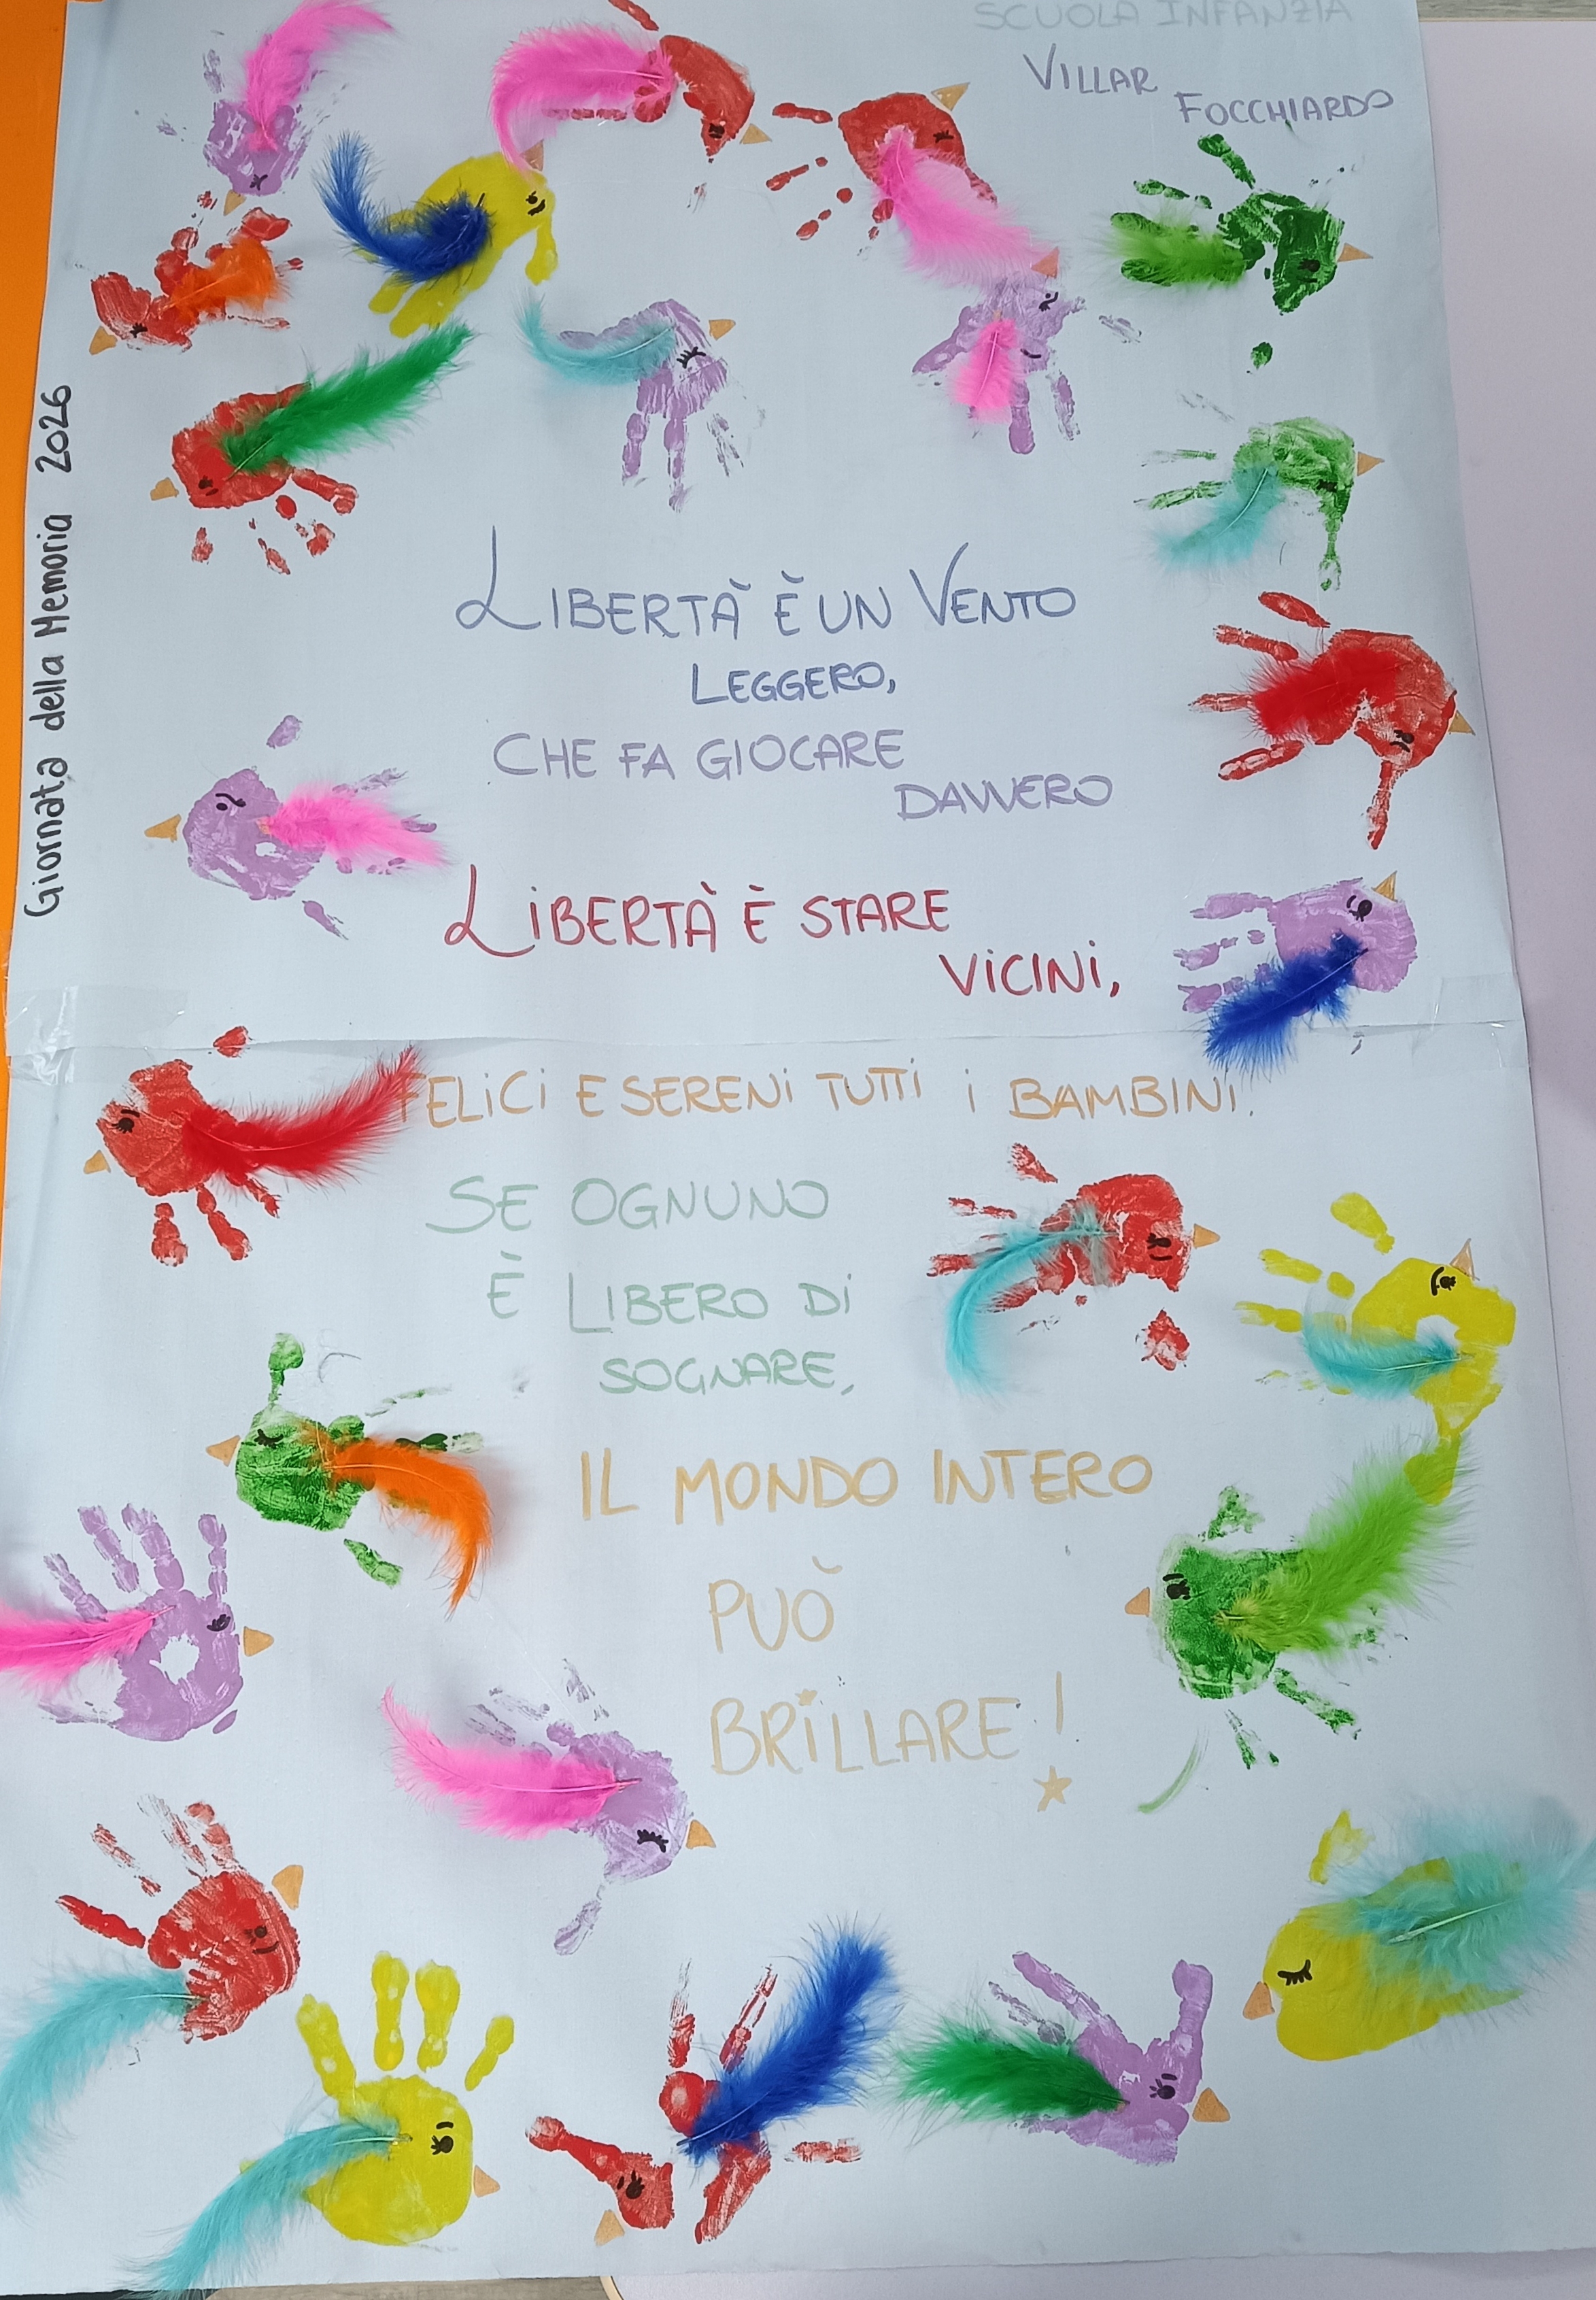 SCUOLA INFANZIA
VILLAR
FOCCHIARDO
Giornata della Memoria 2026
LIBERTÀ È UN VENTO
LEGGERO,
CHE FA GIOCARE
DAVVERO
LIBERTÀ È STARE
VICINI,
FELICI E SERENI TUTTI I BAMBINI.
SE OGNUNO
È LIBERO DI
SOGNARE,
IL MONDO INTERO
PUÒ
BRILLARE!